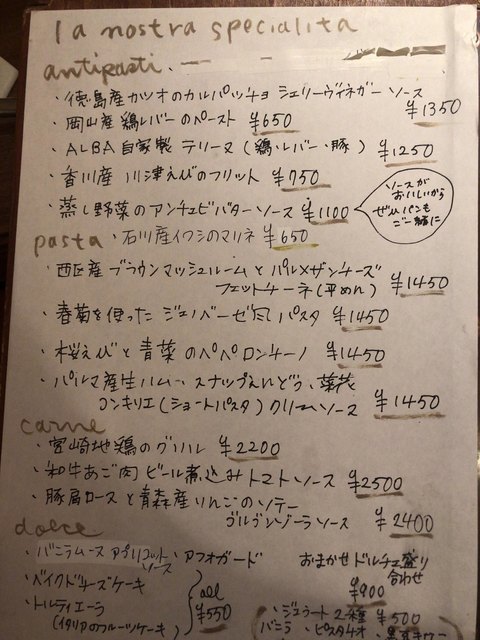 la nostra specialita
antipasti
・徳島産カツオのカルパッチョ シェリーヴィネガーソース ¥1350
・岡山産鶏レバーのペースト ¥650
・ALBA自家製 テリーヌ(鶏・レバー・豚) ¥1250
・香川産 川津えびのフリット ¥750
・蒸し野菜のアンチョビバターソース ¥1100
ソースが
おいしいから
ぜひパンも
ご一緒に
・石川産イワシのマリネ ¥650
pasta
・西区産ブラウンマッシュルームとパルメザンチーズ
フェットチーネ(平めん) ¥1450
・春菊を使ったジェノベーゼ風パスタ ¥1450
・桜えびと青菜のペペロンチーノ ¥1450
・パルマ産生ハム、スナップえんどう、菜花
コンキリエ(ショートパスタ)クリームソース ¥1450
carne
・宮崎地鶏のグリル ¥2200
・和牛あご肉ビール煮込みトマトソース ¥2500
・豚肩ロースと青森産りんごのソテー
ゴルゴンゾーラソース ¥2400
dolce
・バニラムース アプリコットソース
・アフォガード
・ベイクドチーズケーキ
・トルティエーラ
(イタリアのフルーツケーキ)
all
¥550
おまかせドルチェ盛り
合わせ
¥900
・ジェラート2種 ¥500
バニラ・ピスタチオ・